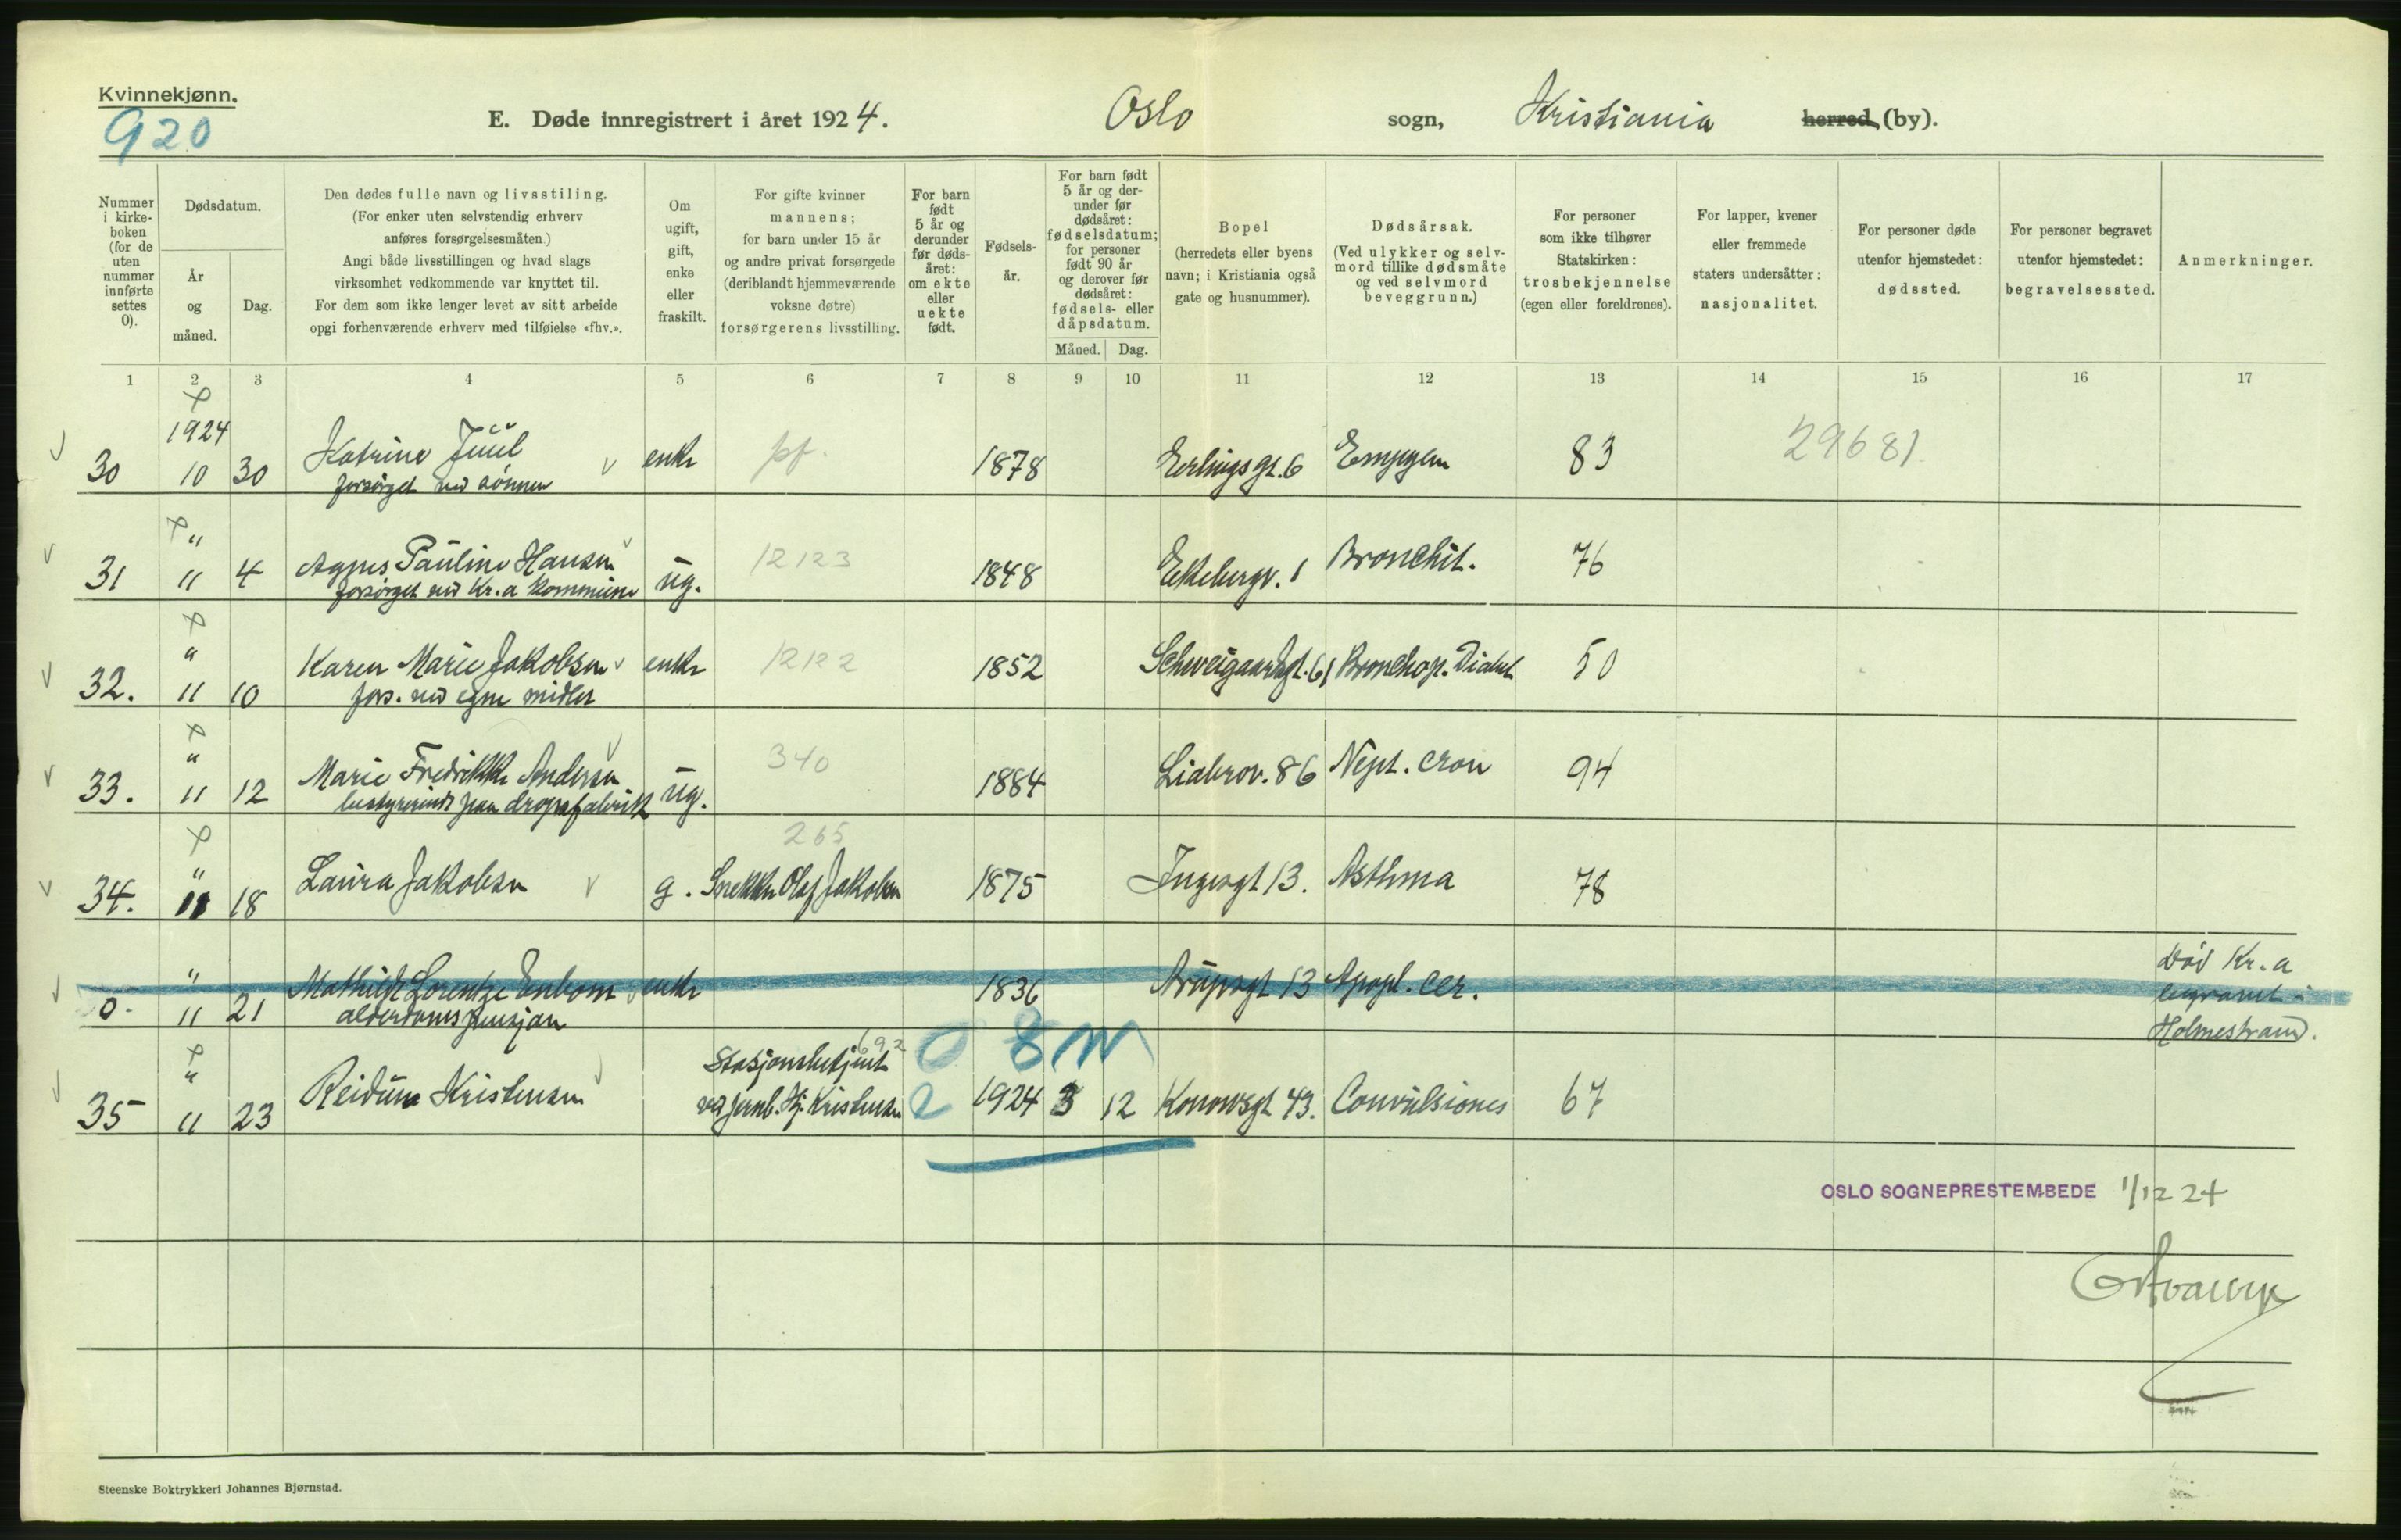 Kvinnekjønn.
920
E. Døde innregistrert i året 1924. Oslo sogn, Kristiania herred, (by).
Nummer i kirke- boken (for de uten nummer innførte settes 0).
Dødsdatum.
År og måned.
Dag.
Den dødes fulle navn og livsstiling.
(For enker uten selvstendig erhverv
anføres forsørgelsesmåten.)
Angi både livsstillingen og hvad slags
virksomhet vedkommende var knyttet til.
For dem som ikke lenger levet av sitt arbeide
opgi forhenværende erhverv med tilføielse «fhv.».
Om
ugift,
gift,
enke
eller
fraskilt.
For gifte kvinner
mannens;
for barn under 15 år
og andre privat forsørgede
(deriblandt hjemmeværende
voksne døtre)
forsørgerens livsstilling.
For barn
født
5 år og
derunder
før døds-
året:
om ekte
eller
uekte
født.
Fødsels-
år.
For barn født
5 år og der-
under før
dødsåret:
fødselsdatum;
for personer
født 90 år
og derover før
dødsåret:
fødsels- eller
dåpsdatum.
Måned. Dag.
Bopel
(herredets eller byens
navn; i Kristiania også
gate og husnummer).
Dødsårsak.
(Ved ulykker og selv-
mord tillike dødsmåte
og ved selvmord
beveggrunn.)
For personer
som ikke tilhører
Statskirken:
trosbekjennelse
(egen eller foreldrenes).
For lapper, kvener
eller fremmede
staters undersåtter:
nasjonalitet.
For personer døde
utenfor hjemstedet:
dødssted.
For personer begravet
utenfor hjemstedet:
begravelsessted.
Anmerkninger.
1 2 3 4 5 6 7 8 9 10 11 12 13 14 15 16 17
1924
30 10 30 Katrine Juul enke pf. 1878 Erlingsgt. 6 Empyem 83 29681
forsørget ved sønnen
"
31 11 4 Agnes Pauline Hansen ug. 12123 1848 Ekebergv. 1 Bronchit. 76
forsørget ved Kr.a kommune
"
32. 11 10 Karen Marie Jakobsen enke 12122 1852 Schweigaardsgt. 61 Bronchop. Diabet 50
fors. ved egne midler
"
33. 11 12 Marie Fredrikke Andersen ug. 340 1884 Liabrov. 86 Nept. cron 94
bestyrerinde paa dropsfabrikk
265
"
34. 11 18 Laura Jakobsen g. Snekker Olaf Jakobsen 1875 Ingesgt 13. Asthma 78
"
0. 11 21 Mathilde Lorentze Enbom enke 1836 Arupsgt 13 Apopl. cer. Død Kr.a
begravet i
Holmestrand.
alderdomspensjon
692 0 8 m
"
Stasjonsbetjent
35 11 23 Reidun Kristensen ved jernb. Hj. Kristensen 2 1924 3 12 Konowsgt 43. Convulsiones 67
OSLO SOGNEPRESTEMBEDE 1/12 24
Steenske Boktrykkeri Johannes Bjørnstad.